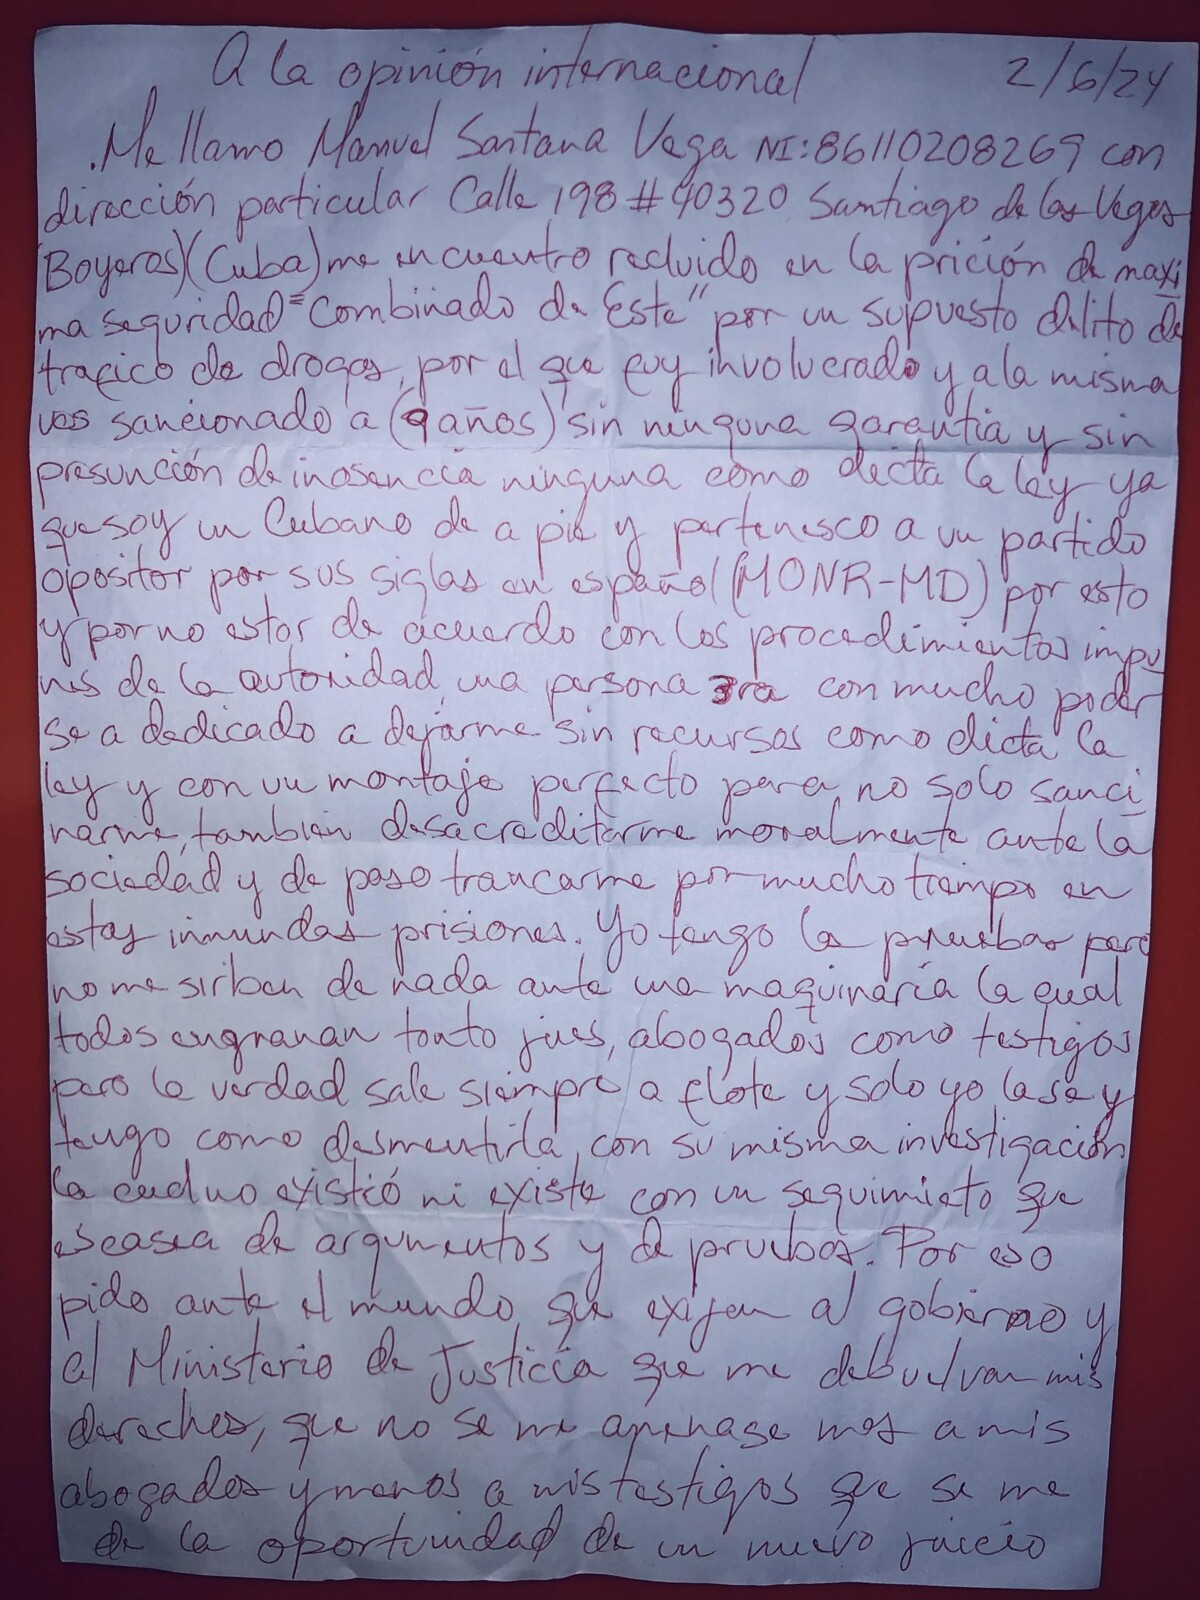 A la opinión internacional 2/6/24
.Me llamo Manuel Santana Vega NI:86110208269 con
dirección particular Calle 198 #40320 Santiago de las Vegas
(Boyeros)(Cuba) me encuentro recluido en la prición de maxi
ma seguridad "Combinado de Este" por un supuesto delito de
trafico de drogas, por el que fuy involucrado y a la misma
ves sancionado a (9 años) sin ninguna garantia y sin
presunción de inosencia ninguna como dicta la ley ya
que soy un Cubano de a pie y pertenesco a un partido
opositor por sus siglas en español (MONR-MD) por esto
y por no estar de acuerdo con los procedimientos impu
nes de la autoridad, una persona 3ra con mucho poder
se a dedicado a dejarme sin recursos como dicta la
ley y con un montaje perfecto para no solo sanci
narme, tambien desacreditarme moralmente ante la
sociedad y de paso trancarme por mucho tiempo en
estas inmundas prisiones. Yo tengo las pruebas pero
no me sirben de nada ante una maquinaria la cual
todos engranan tanto jues, abogados como testigos
pero la verdad sale siempre a flote y solo yo la se y
tengo como desmentirla, con su misma investigación
la cual no existió ni existe con un seguimieto que
escasea de argumentos y de pruebas. Por eso
pido ante el mundo que exijan al gobierno y
al Ministerio de Justicia que me debuelvan mis
derechos, que no se me amenase mas a mis
abogados y menos a mis testigos que se me
de la oportunidad de un nuevo juicio